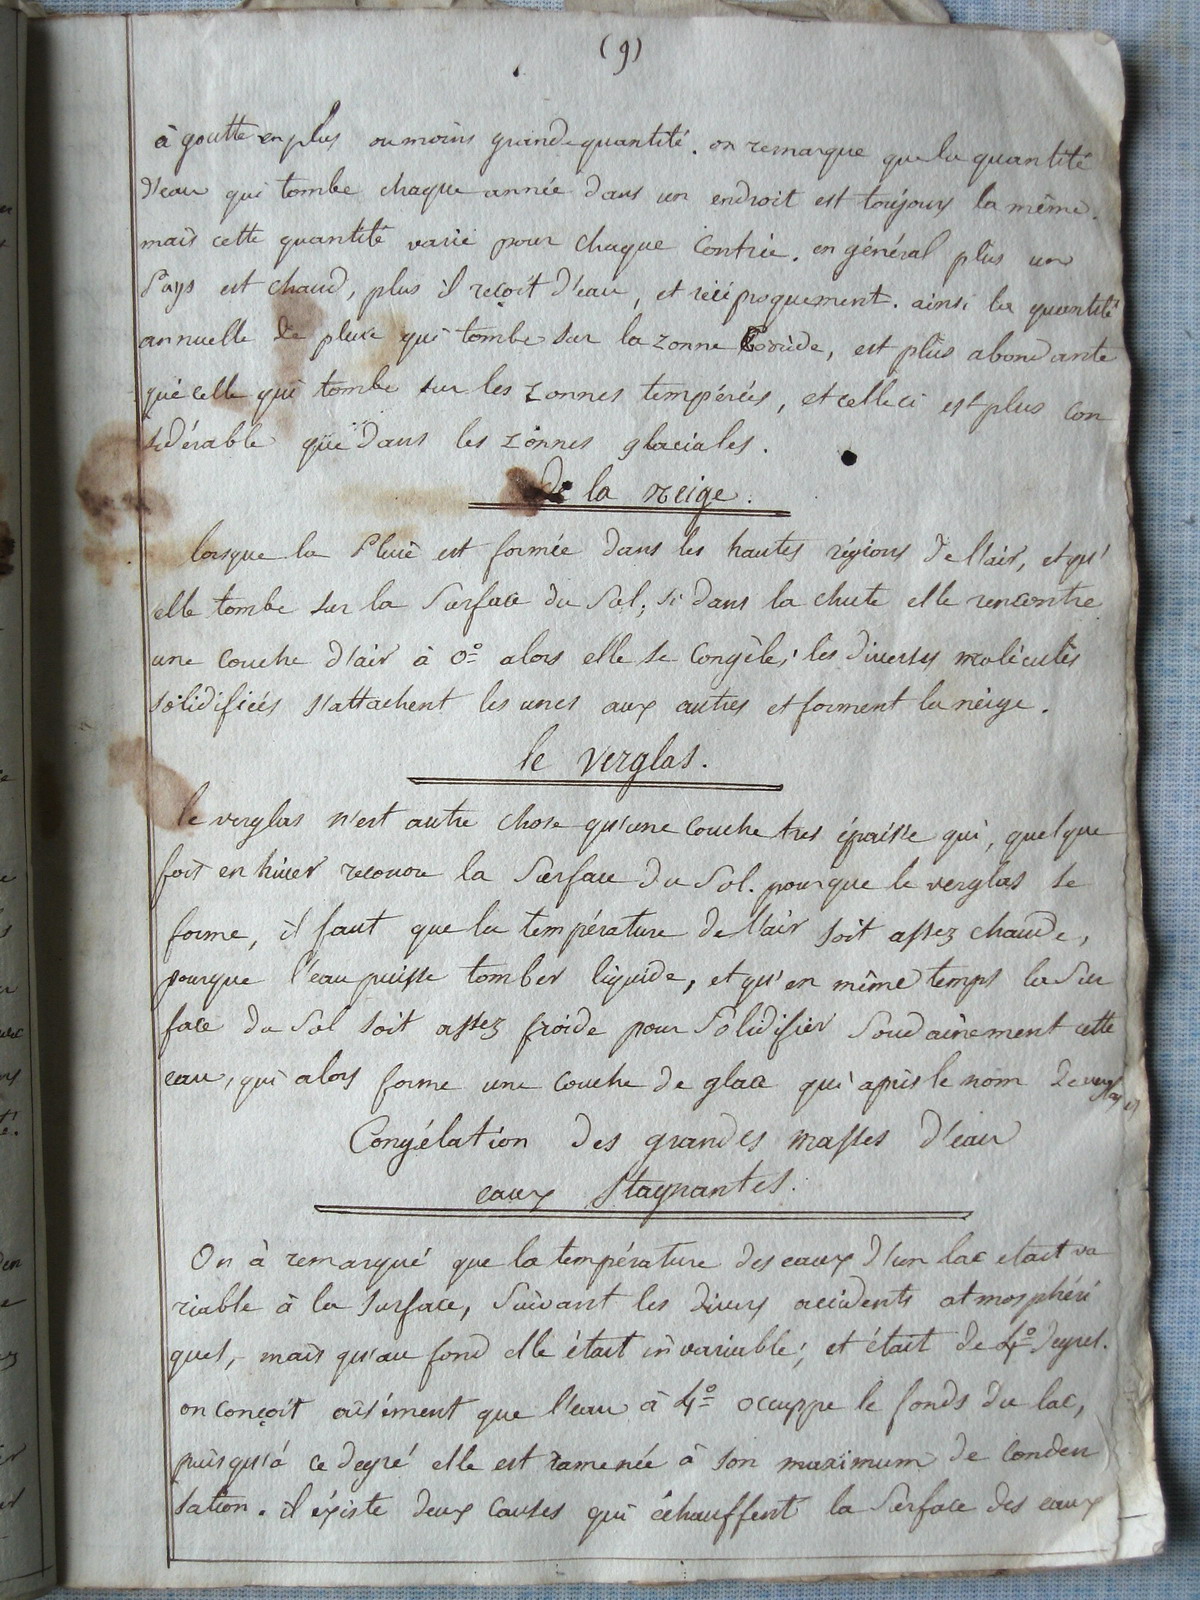 (9)
à goutte en plus ou moins grande quantité. on remarque que la quantité
d'eau qui tombe chaque année dans un endroit est toujours la même.
mais cette quantité varie pour chaque Contrée. en général plus un
Pays est chaud, plus il reçoit d'eau, et réciproquement. ainsi la quantité
annuelle de pluie qui tombe sur la zonne Torride, est plus abondante
que celle qui tombe sur les zonnes tempérées, et celle ci est plus con
sidérable que dans les zônnes glaciales.
de la neige.
lorsque la Pluie est formée dans les hautes régions de l'air, et qu'
elle tombe sur la Surface du Sol, si dans la chute elle rencontre
une Couche d'air à 0° alors elle se Congèle; les diverses molécules
solidifiées s'attachent les unes aux autres et forment la neige.
le verglas.
le verglas n'est autre chose qu'une Couche très épaisse qui, quelque
fois en hiver recouvre la Surface du Sol. pourque le verglas se
forme, il faut que la température de l'air soit assez chaude,
pourque l'eau puisse tomber liquide, et qu'en même temps la Sur
face du Sol soit assez froide pour Solidifier Soudainement cette
eau, qui alors forme une couche de glace qui a pris le nom de verglas
Congélation des grandes masses d'eau
eaux Stagnantes.
On à remarqué que la température des eaux d'un lac etait va
riable à la surface, Suivant les divers accidents atmosphéri
ques, mais qu'au fond elle était invariable; et était de 4° degrés.
on conçoit aisément que l'eau à 4° occuppe le fonds du lac,
puisqu'à ce degré elle est ramenée à son maximum de conden
sation. il éxiste deux causes qui échauffent la Surface des eaux